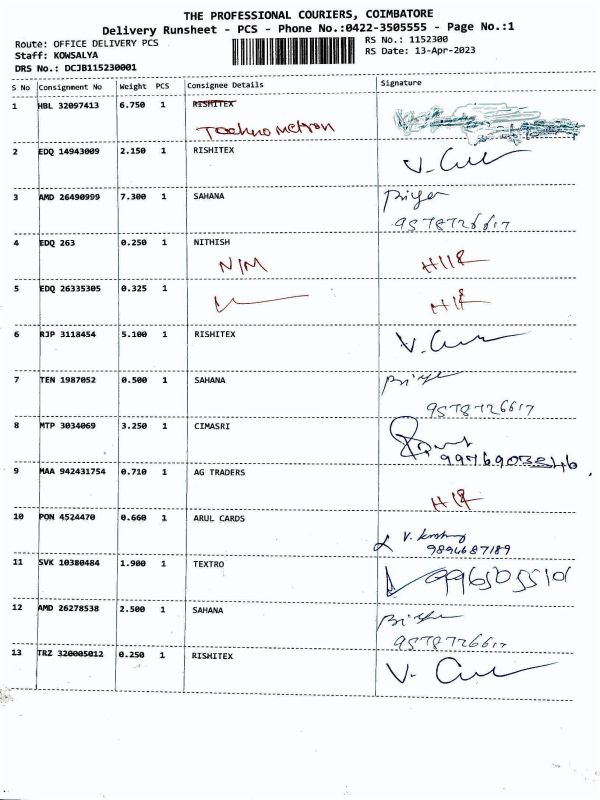 THE PROFESSIONAL COURIERS, COIMBATORE
Delivery Runsheet - PCS - Phone No.:0422-3505555 - Page No.:1
Route: OFFICE DELIVERY PCS
Staff: KOWSALYA
DRS No.: DCJB115230001
RS No.: 1152300
RS Date: 13-Apr-2023
S No Consignment No Weight PCS Consignee Details Signature
1 HBL 32097413 6.750 1 RISHITEX
2 EDQ 14943009 2.150 1 RISHITEX
3 AMD 26490999 7.300 1 SAHANA Priya
9578726617
4 EDQ 263 0.250 1 NITHISH
N/M
5 EDQ 26335305 0.325 1
6 RJP 3118454 5.100 1 RISHITEX
7 TEN 1987052 0.500 1 SAHANA Priya
9578726617
8 MTP 3034069 3.250 1 CIMASRI
9 MAA 942431754 0.710 1 AG TRADERS
10 PON 4524470 0.660 1 ARUL CARDS
9894687189
11 SVK 10380484 1.900 1 TEXTRO
12 AMD 26278538 2.500 1 SAHANA Priya
9578726617
13 TRZ 320005012 0.250 1 RISHITEX